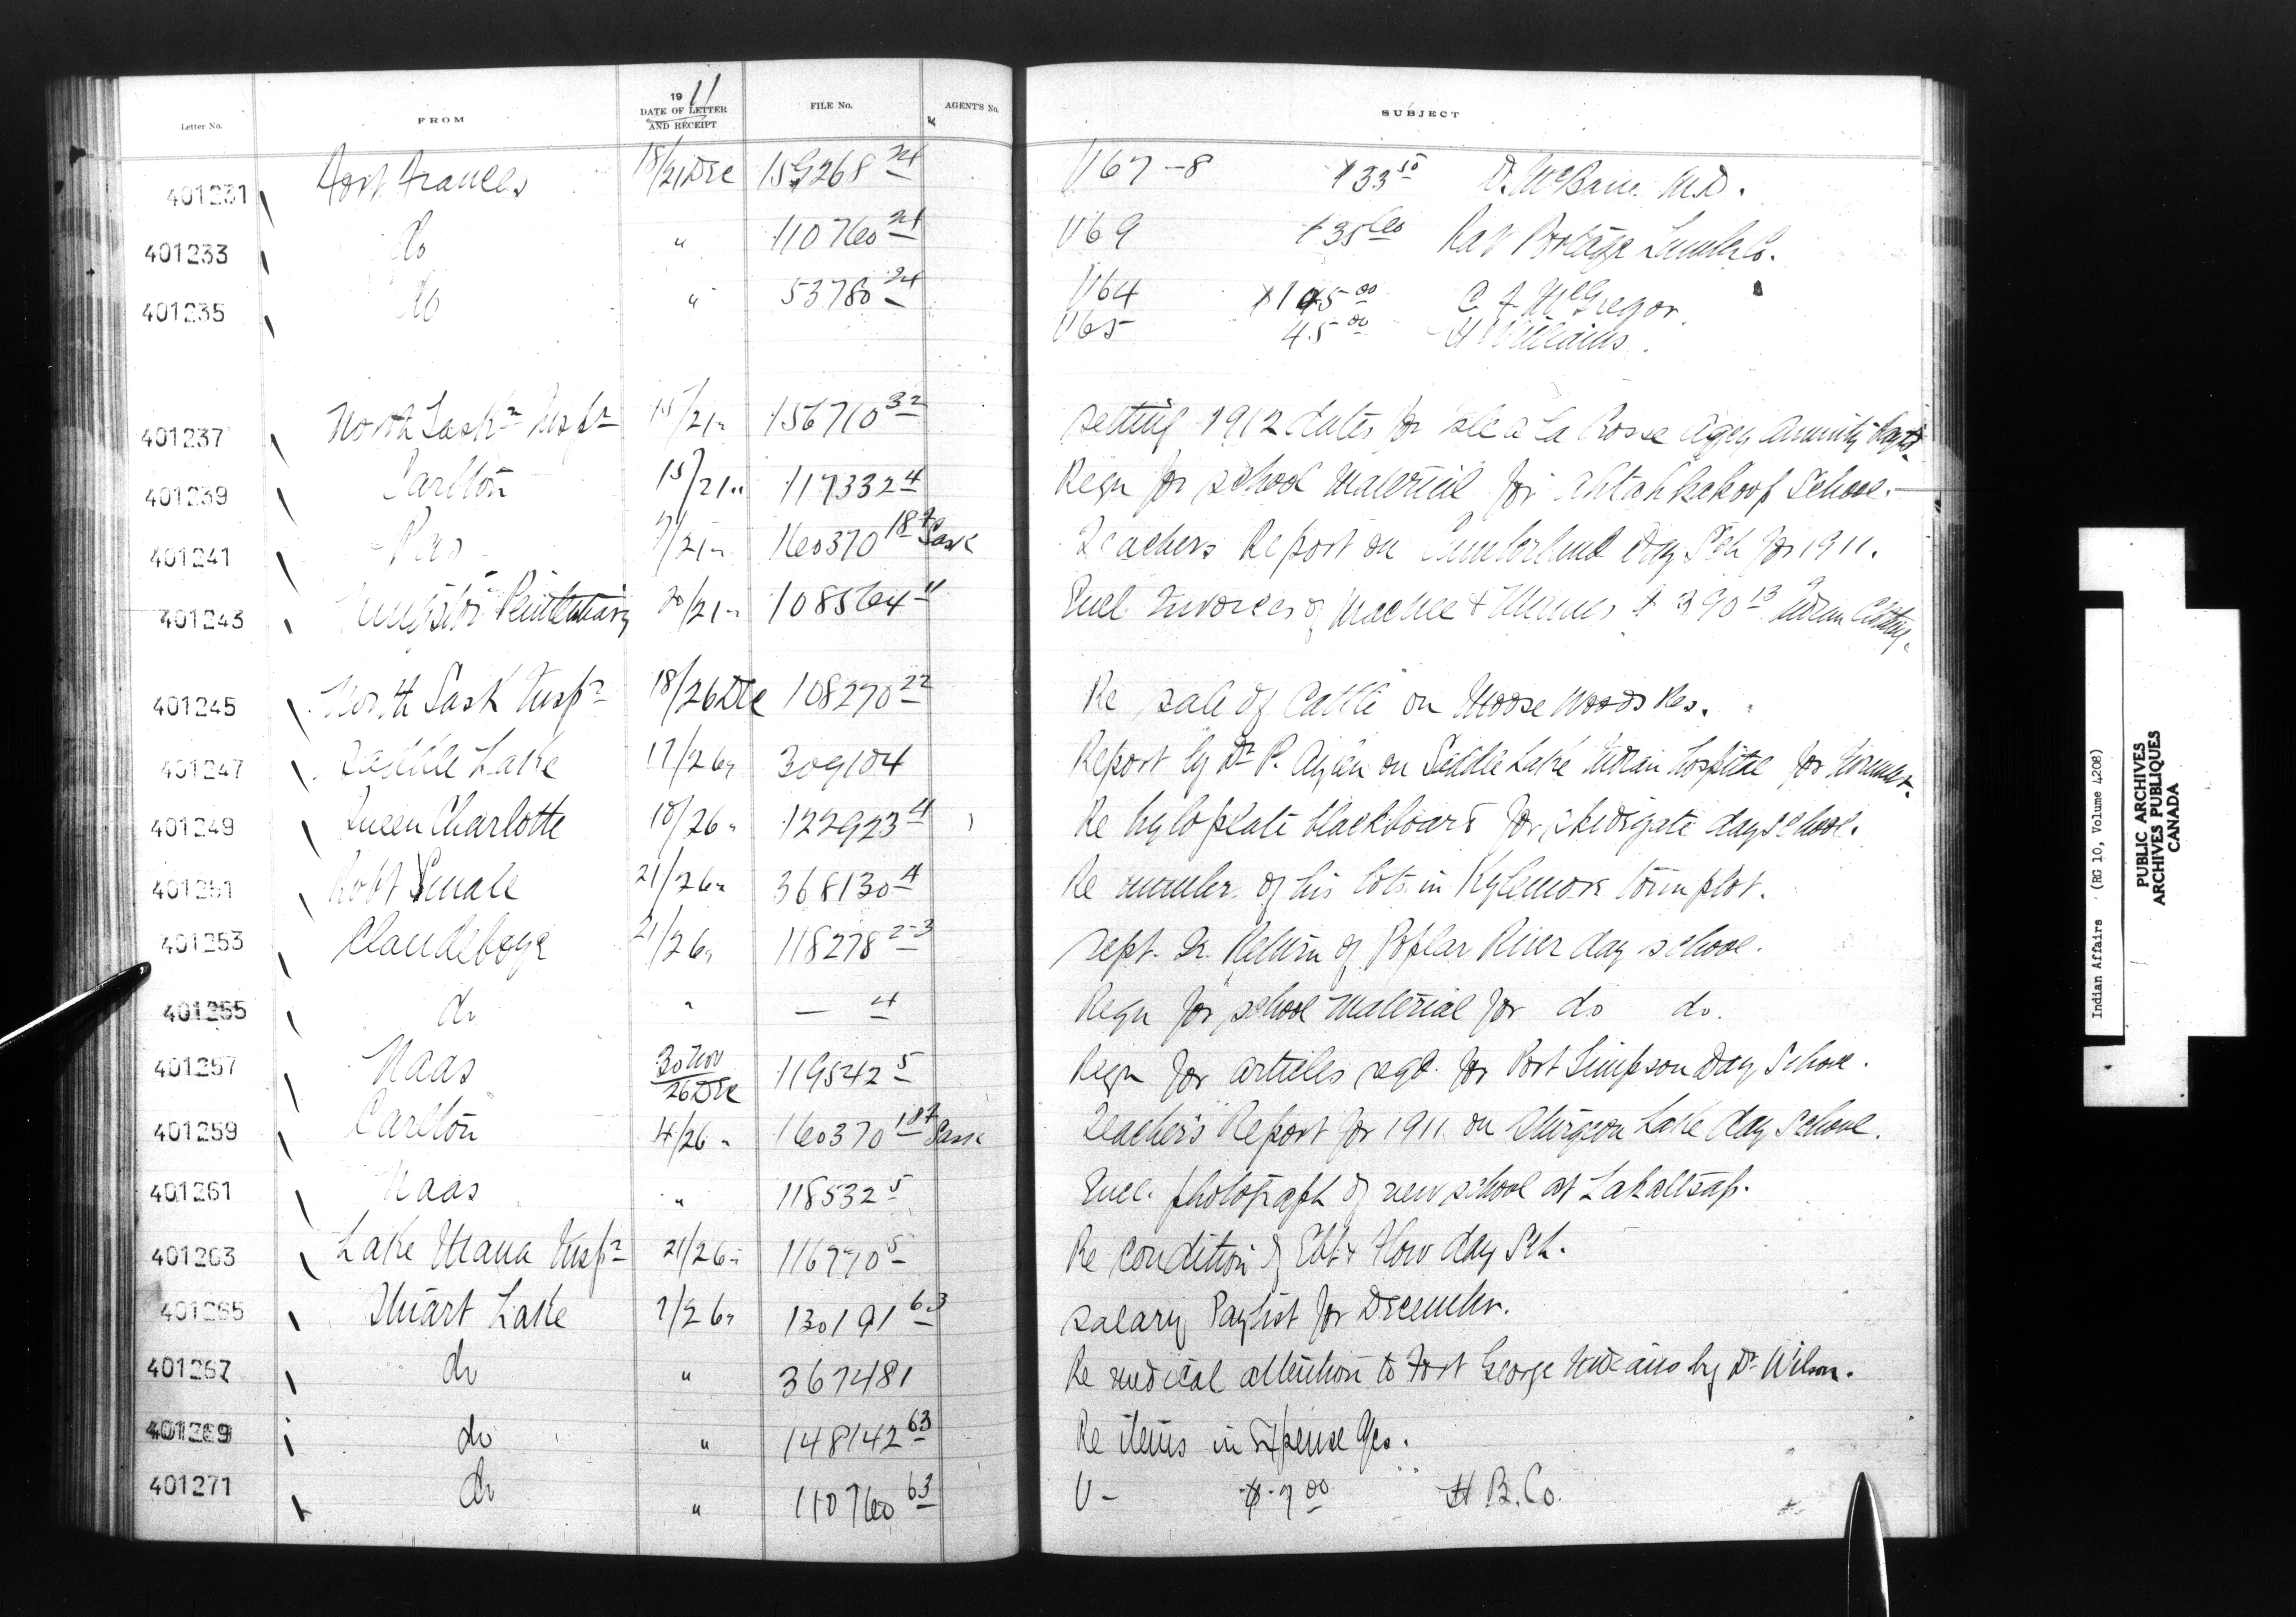 Letter No. FROM 1911 DATE OF LETTER AND RECEIPT FILE No. AGENT'S No. SUBJECT
401231 Fort Frances 18/21 Dec 159268 24 V67-8 $33 50 D. McBain M.D.
401233 do " 110760 24 V69 $35 60 Rat Portage Lumber Co.
401235 do " 53780 24 V64 $105 00 C F McGregor
V65 45 00 H Williams.
401237 North Sask Insp 15/21 " 156710 32 setting 1912 dates for Ile a La Crosse Agcy Annuity Payts
401239 Carlton 15/21 " 117332 4 Reqn for school material for Ahtahkakoop School.
401241 Pas /21 " 160370 18 Sask Teachers Report on Cumberland Day Sch for 1911.
401243 Kingston Penitentiary 20/21 " 108564 Encl. Invoices of $390 13 Indian Clothing.
401245 North Sask Insp 18/26 Dec 108270 22 Re sale of Cattle on Moose Woods Res.
401247 Saddle Lake 17/26 " 309104 Report by Dr P. Aylen on Saddle Lake Indian Hospital for
401249 Queen Charlotte 10/26 " 122923 4 Re hyloplate blackboard for Skidigate day school.
401251 Robt Smale 21/26 " 368130 4 Re number of his lots in Kylemore townplot.
401253 Clandeboye 21/26 " 118278 2-3 Sept. Qr. Return of Poplar River day school.
401255 do " — 4 Reqn for school material for do do.
401257 Naas 30 Nov 26 Dec 119542 5 Reqn for articles reqd. for Port Simpson Day School.
401259 Carlton 4/26 " 160370 18 Sask Teacher's Report for 1911 on Sturgeon Lake day School.
401261 Naas " 118532 5 Encl. photograph of new school at Lakaltsap.
401263 Lake Mana Insp 21/26 " 116770 5 Re condition of Ebb & Flow day Sch.
401265 Stuart Lake 7/26 " 130191 63 Salary Paylist for December.
401267 do " 367481 Re medical attention to Fort George Indians by Dr Wilson.
401269 do " 148142 63 Re items in Expense %cs.
401271 do " 110760 63 V- $7 00 H.B.Co.
Indian Affairs (RG 10, Volume 4208)
PUBLIC ARCHIVES
ARCHIVES PUBLIQUES
CANADA